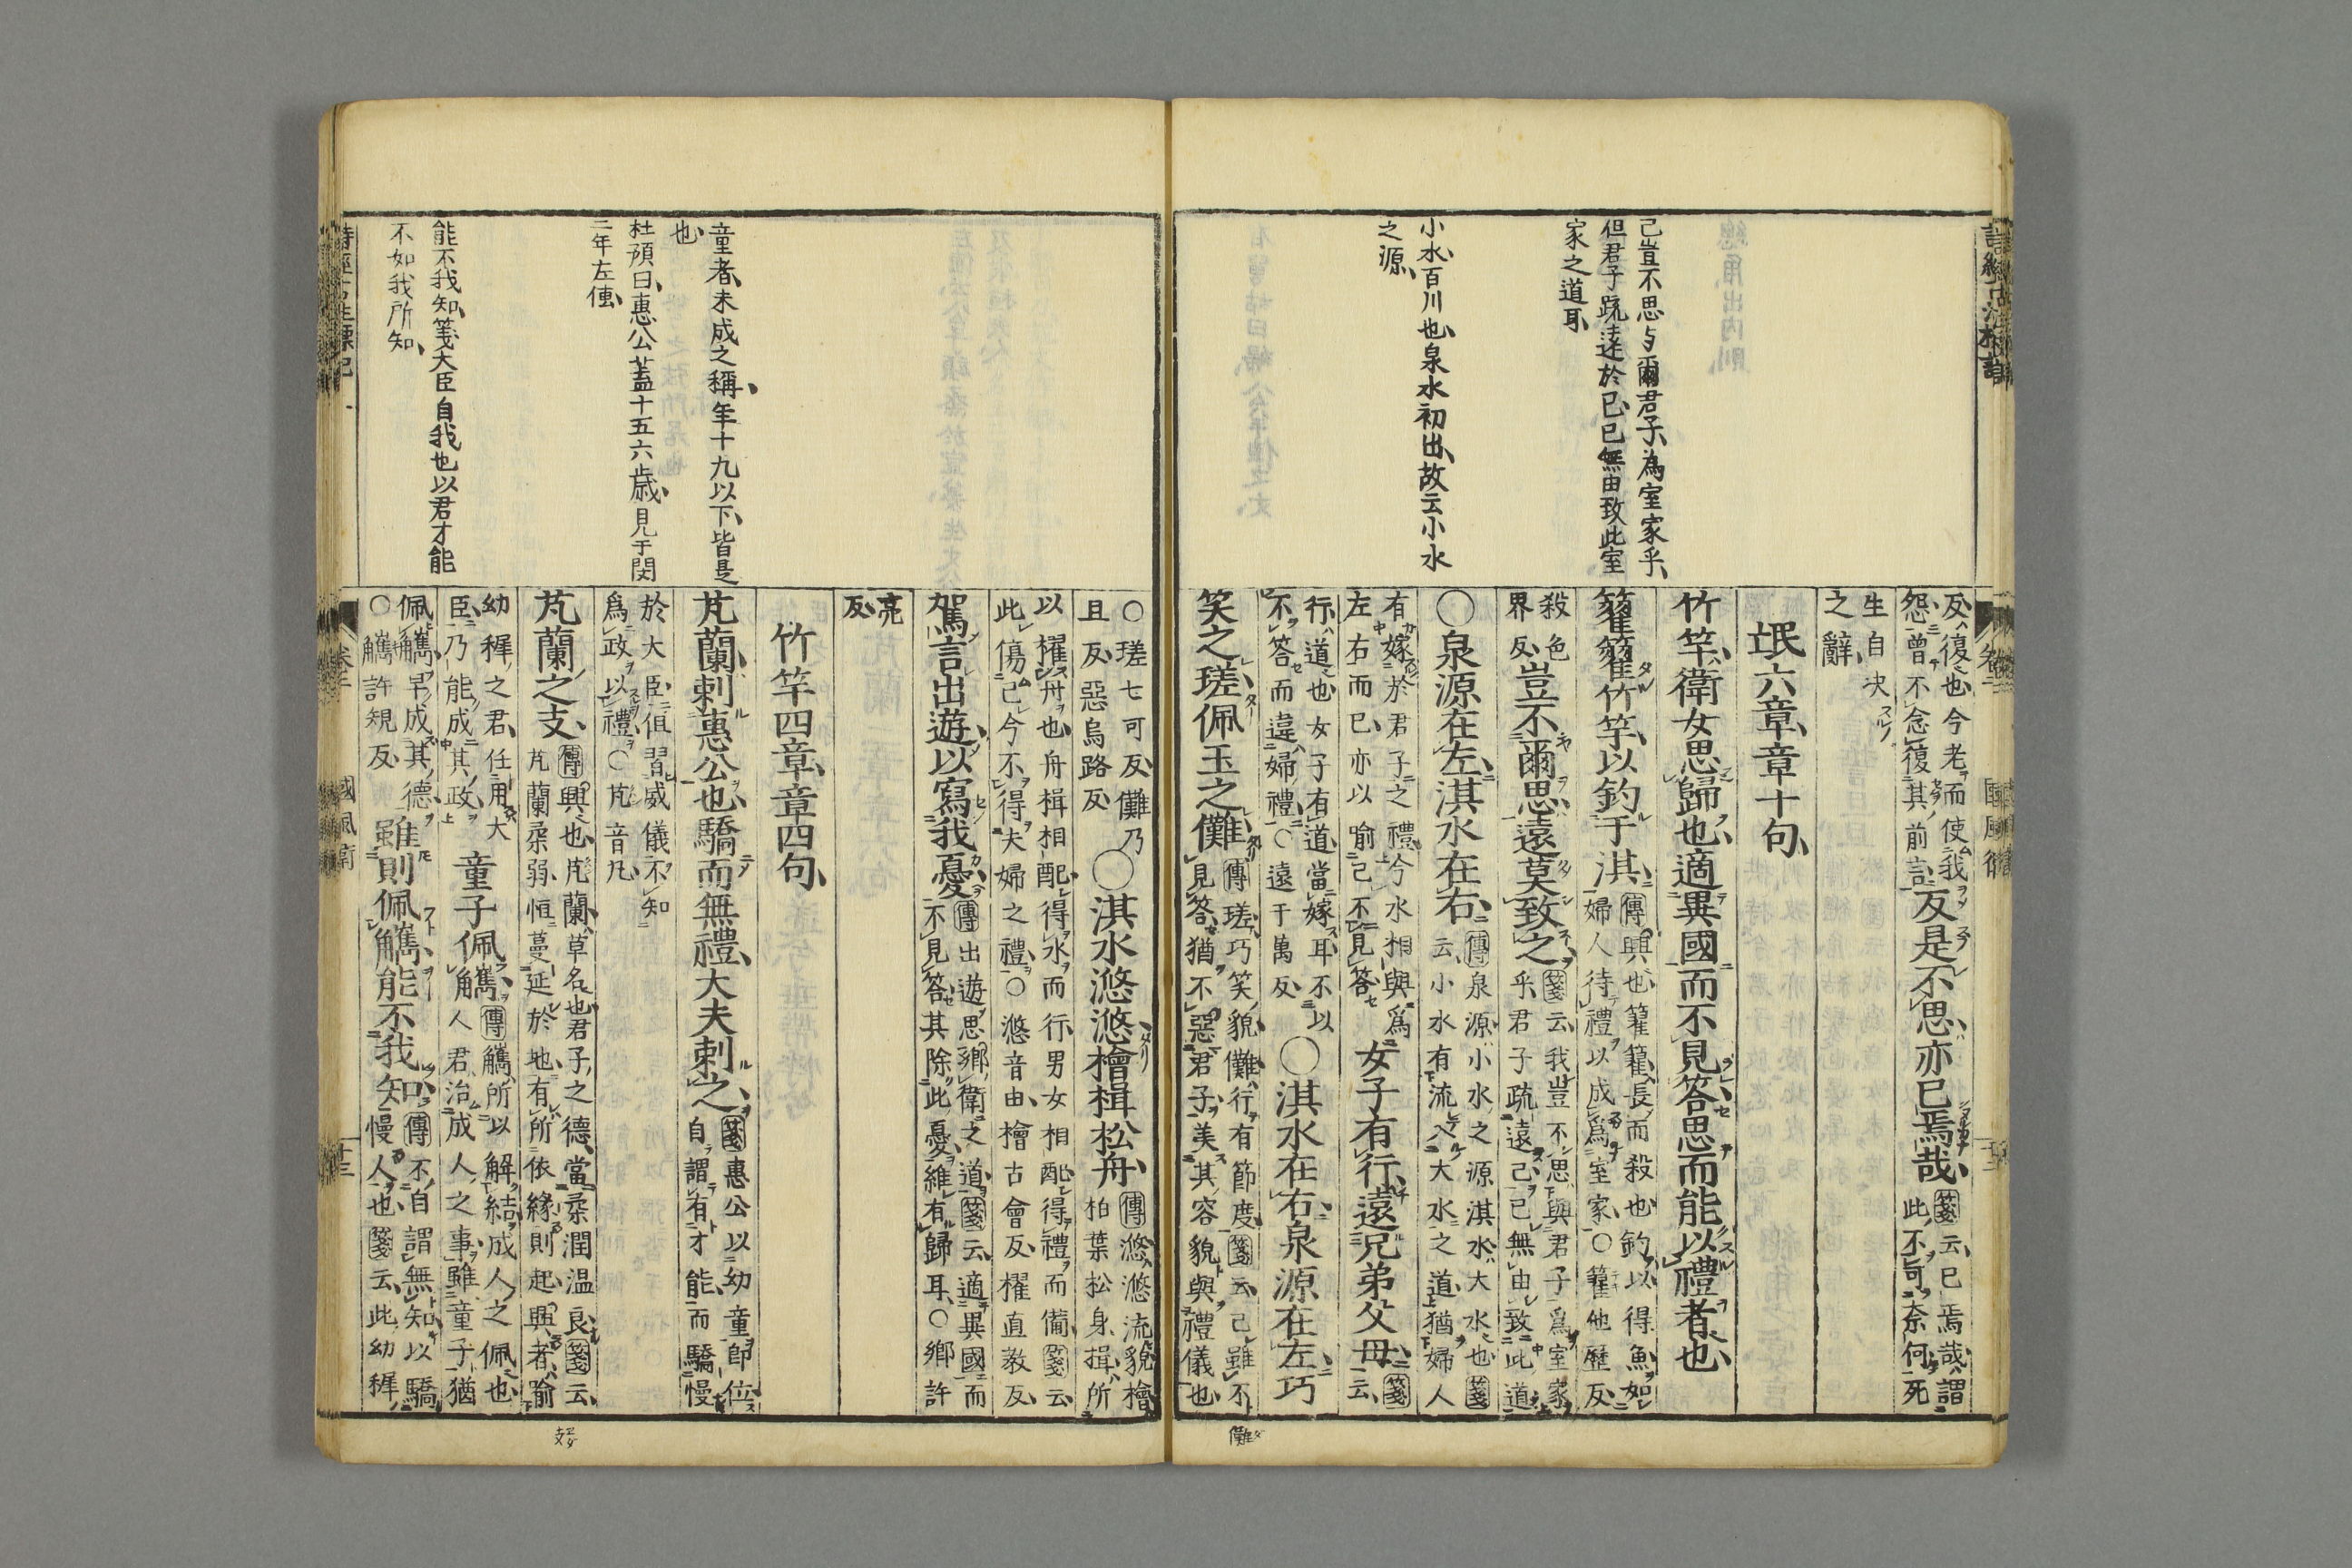 己豈不思与爾君子、為室家乎、
但君子疏遠於己、己無由致此室
家之道耳、
小水、百川也、泉水初出、故云小水
之源、
反、復也、今老而使我
怨、曾不念復其前言、
反是不思、亦已焉哉、
箋云、已焉哉、謂
此不可奈何、死
生自决
之辭、
氓六章、章十句、
竹竿、衛女思歸也、適異國而不見答、思而能以禮者也、
籊籊竹竿、以釣于淇、
傳興也、籊籊、長而殺也、釣以得魚、如
婦人待禮以成爲室家、○籊他歷反、
殺色
界反、
豈不爾思、遠莫致之、
箋云、我豈不思與君子爲室家
乎、君子疏遠己、己無由致此道、
○泉源在左、淇水在右、
傳泉源、小水之源、淇水、大水也、箋
云、小水有流入大水之道、猶婦人
有嫁於君子之禮、今水相與爲
左右而已、亦以喻己不見答、
女子有行、遠兄弟父母、
箋
云、
行、道也、女子有道當嫁耳、不以
不答而違婦禮、○遠于萬反、
○淇水在右、泉源在左、巧
笑之瑳、佩玉之儺、
傳瑳、巧笑貌、儺、行有節度、箋云、己雖不
見答、猶不惡君子、美其容貌與禮儀也、
○瑳七可反、儺乃
且反、惡烏路反、
○淇水滺滺、檜楫松舟、
傳滺滺、流貌、檜、
柏葉松身、楫、所
以櫂舟也、舟楫相配、得水而行、男女相配、得禮而備、箋云、
此傷己今不得夫婦之禮、○滺音由、檜古會反、櫂直教反、
駕言出遊、以寫我憂、
傳出遊思鄉衛之道、箋云、適異國而
不見答、其除此憂、維有歸耳、○鄉許
亮
反、
竹竿四章、章四句、
童者、未成之稱、年十九以下、皆是
也、
杜預曰、惠公蓋十五六歲、見于閔
二年左傳、
能不我知、箋大臣自我也、以君才能
不如我所知、
芄蘭、刺惠公也、驕而無禮、大夫刺之、
箋惠公以幼童卽位、
自謂有才能、而驕慢
於大臣、但習威儀、不知
爲政以禮、○芄音丸、
芄蘭之支、
傳興也、芄蘭、草名也、君子之德、當柔潤溫良、箋云、
芄蘭柔弱、恒蔓延於地、有所依緣則起、興者、喻
幼穉之君、任用大
臣、乃能成其政、
童子佩觿、
傳觿、所以解結、成人之佩也、
人君治成人之事、雖童子、猶
佩觿、早成其德、
○觿許規反、
雖則佩觿、能不我知、
傳不自謂無知、以驕
慢人也、箋云、此幼穉